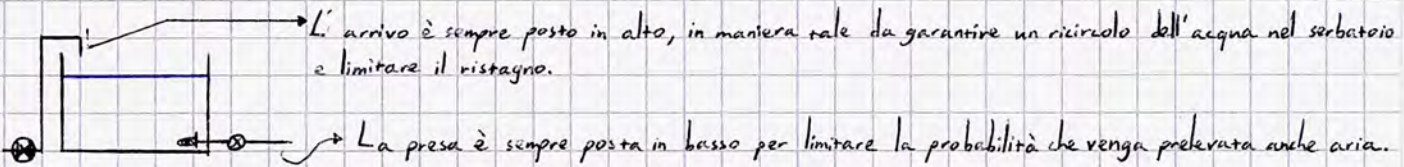 L' arrivo è sempre posto in alto, in maniera tale da garantire un ricircolo dell' acqua nel serbatoio
e limitare il ristagno.
La presa è sempre posta in basso per limitare la probabilità che venga prelevata anche aria.